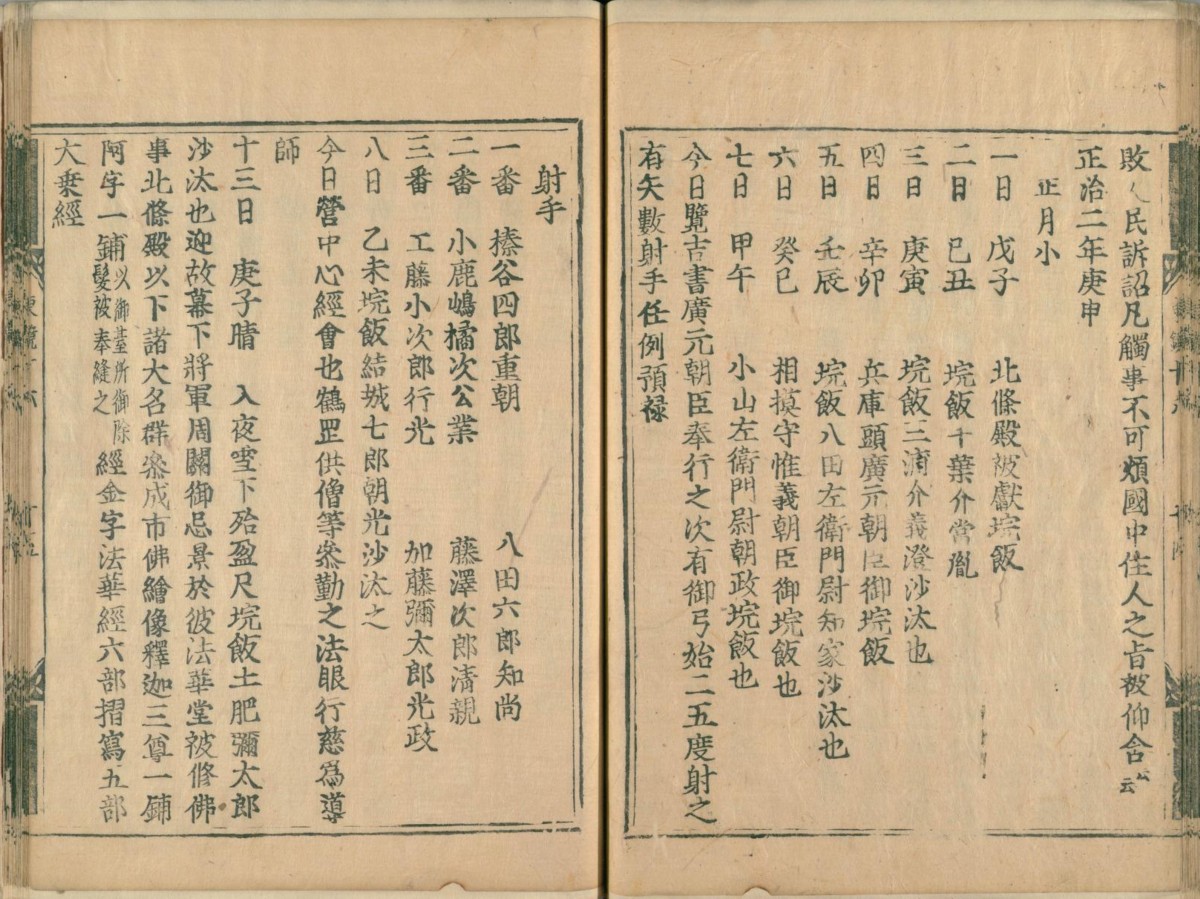 敗人民訴詔凡觸事不可煩國中住人之旨被仰含云云
正治二年庚申
正月小
一日　戊子　北條殿被獻垸飯
二日　己丑　垸飯千葉介常胤
三日　庚寅　垸飯三浦介義澄沙汰也
四日　辛卯　兵庫頭廣元朝臣御垸飯
五日　壬辰　垸飯八田左衛門尉知家沙汰也
六日　癸巳　相摸守惟義朝臣御垸飯也
七日　甲午　小山左衛門尉朝政垸飯也
今日覽吉書廣元朝臣奉行之次有御弓始二五度射之
有矢數射手任例預祿
射手
一番　榛谷四郎重朝　八田六郎知尚
二番　小鹿嶋橘次公業　藤澤次郎清親
三番　工藤小次郎行光　加藤彌太郎光政
八日　乙未垸飯結城七郎朝光沙汰之
今日營中心經會也鶴罡供僧等參勤之法眼行慈爲導
師
十三日　庚子晴　入夜雪下殆盈尺垸飯土肥彌太郎
沙汰也迎故幕下將軍周闋御忌景於彼法華堂被修佛
事北條殿以下諸大名群參成市佛繪像釋迦三尊一鋪
阿字一鋪以御臺所御除髮被奉縫之經金字法華経六部摺寫五部
大乗經